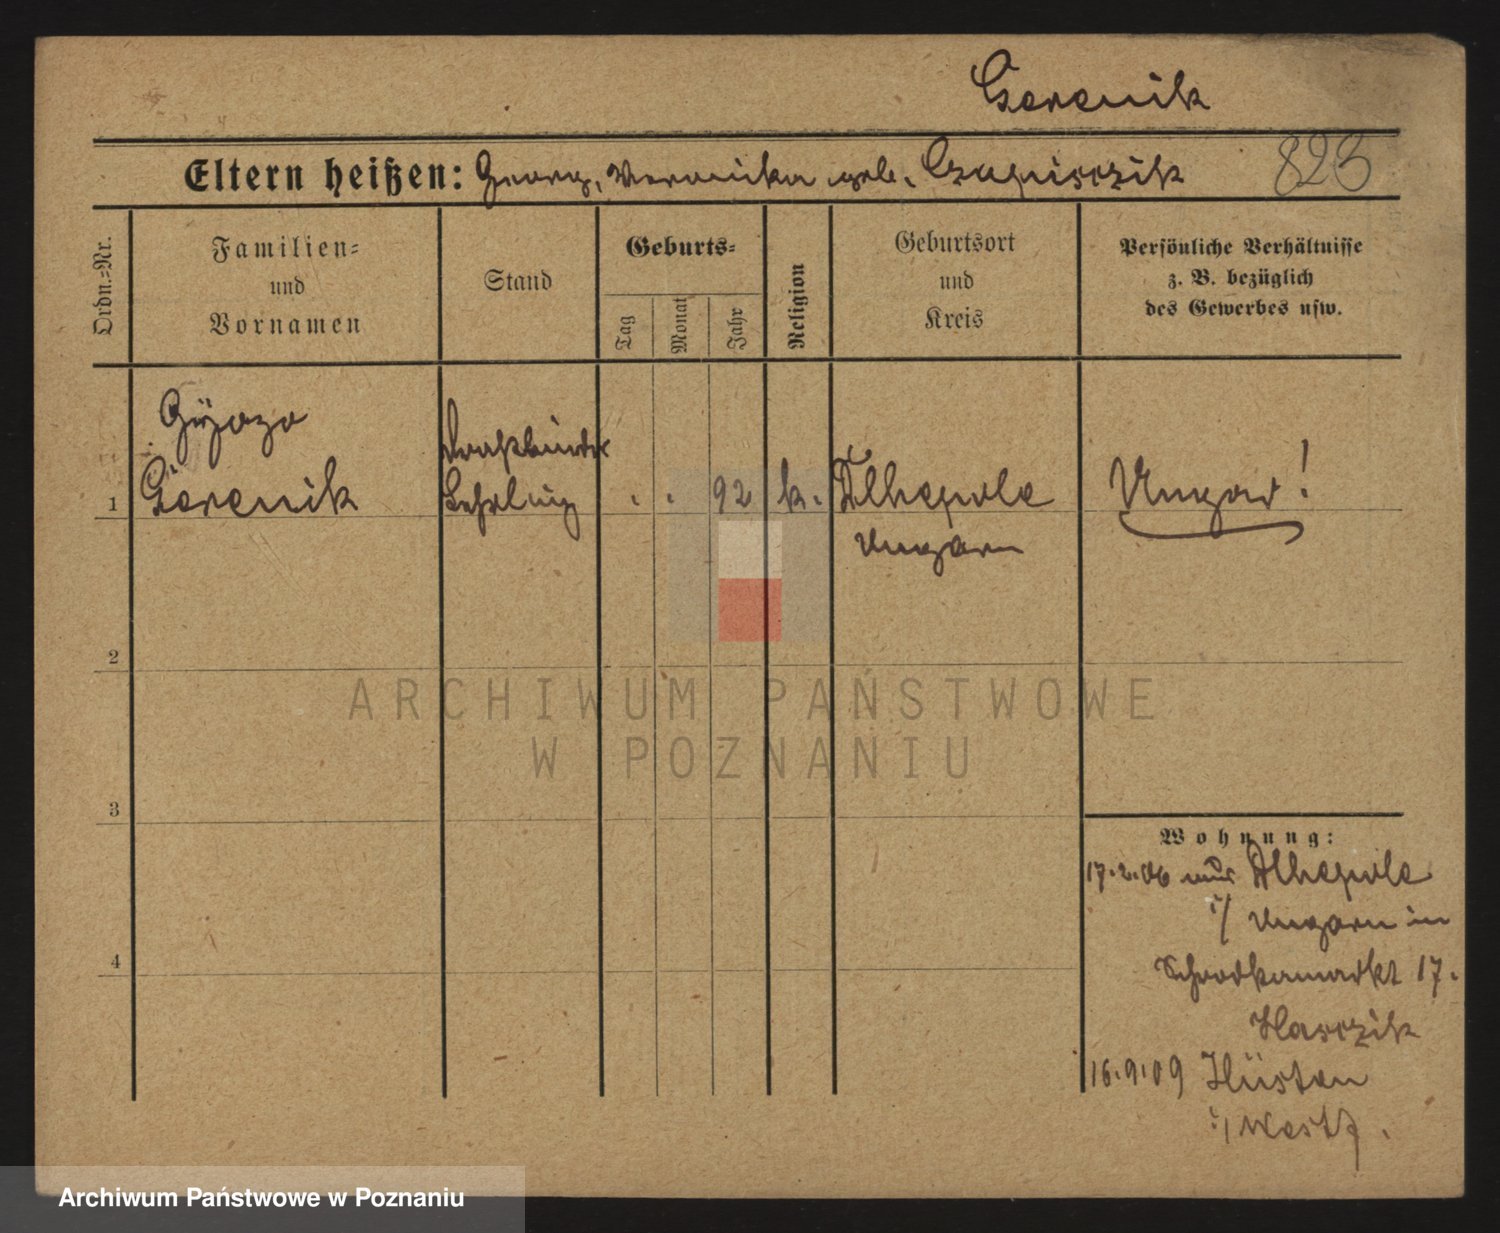 Gerenik
Eltern heißen: Georg, Veronika geb. Czupisczik 823
Ordn.=Nr.
Familien=
und
Vornamen
Stand
Geburts=
Tag
Monat
Jahr
Religion
Geburtsort
und
Kreis
Persönliche Verhältnisse
z. B. bezüglich
des Gewerbes usw.
Györzo
Drahtbinder
1 Gerenik Lehrling " " 92 k. Alhepole Ungar!
Ungarn
2
ARCHIWUM PAŃSTWOWE
W POZNANIU
3
Wohnung:
17.2.06 aus Alhepole
i/ Ungarn in
Schrodkamarkt 17.
Hasczik
4
16.9.09 Hüsten
i/ Westf.
Archiwum Państwowe w Poznaniu